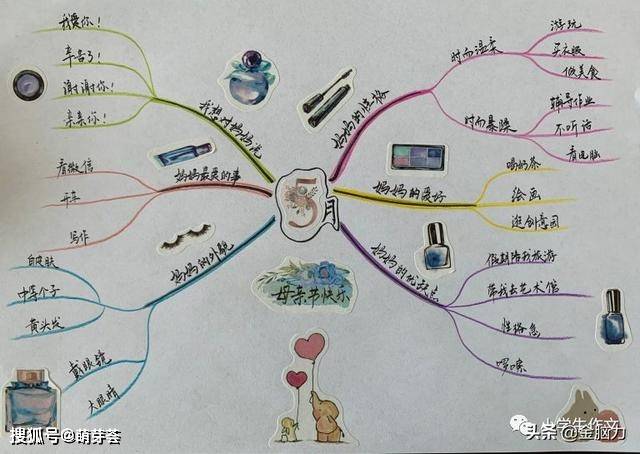 我爱你！
辛苦了！
谢谢你！
亲亲你！
我想对妈妈说
看微信
开车
写作
妈妈最爱的事
白皮肤
中等个子
黄头发
戴眼镜
大眼睛
妈妈的外貌
5月
母亲节快乐
妈妈的性格
时而温柔
游玩
买衣服
做美食
时而暴躁
辅导作业
不听话
看电脑
妈妈的爱好
喝奶茶
绘画
逛创意园
妈妈的优缺点
假期陪我旅游
带我去艺术馆
性格急
啰嗦
小学生作文
头条@金脑力
搜狐号@萌芽荟